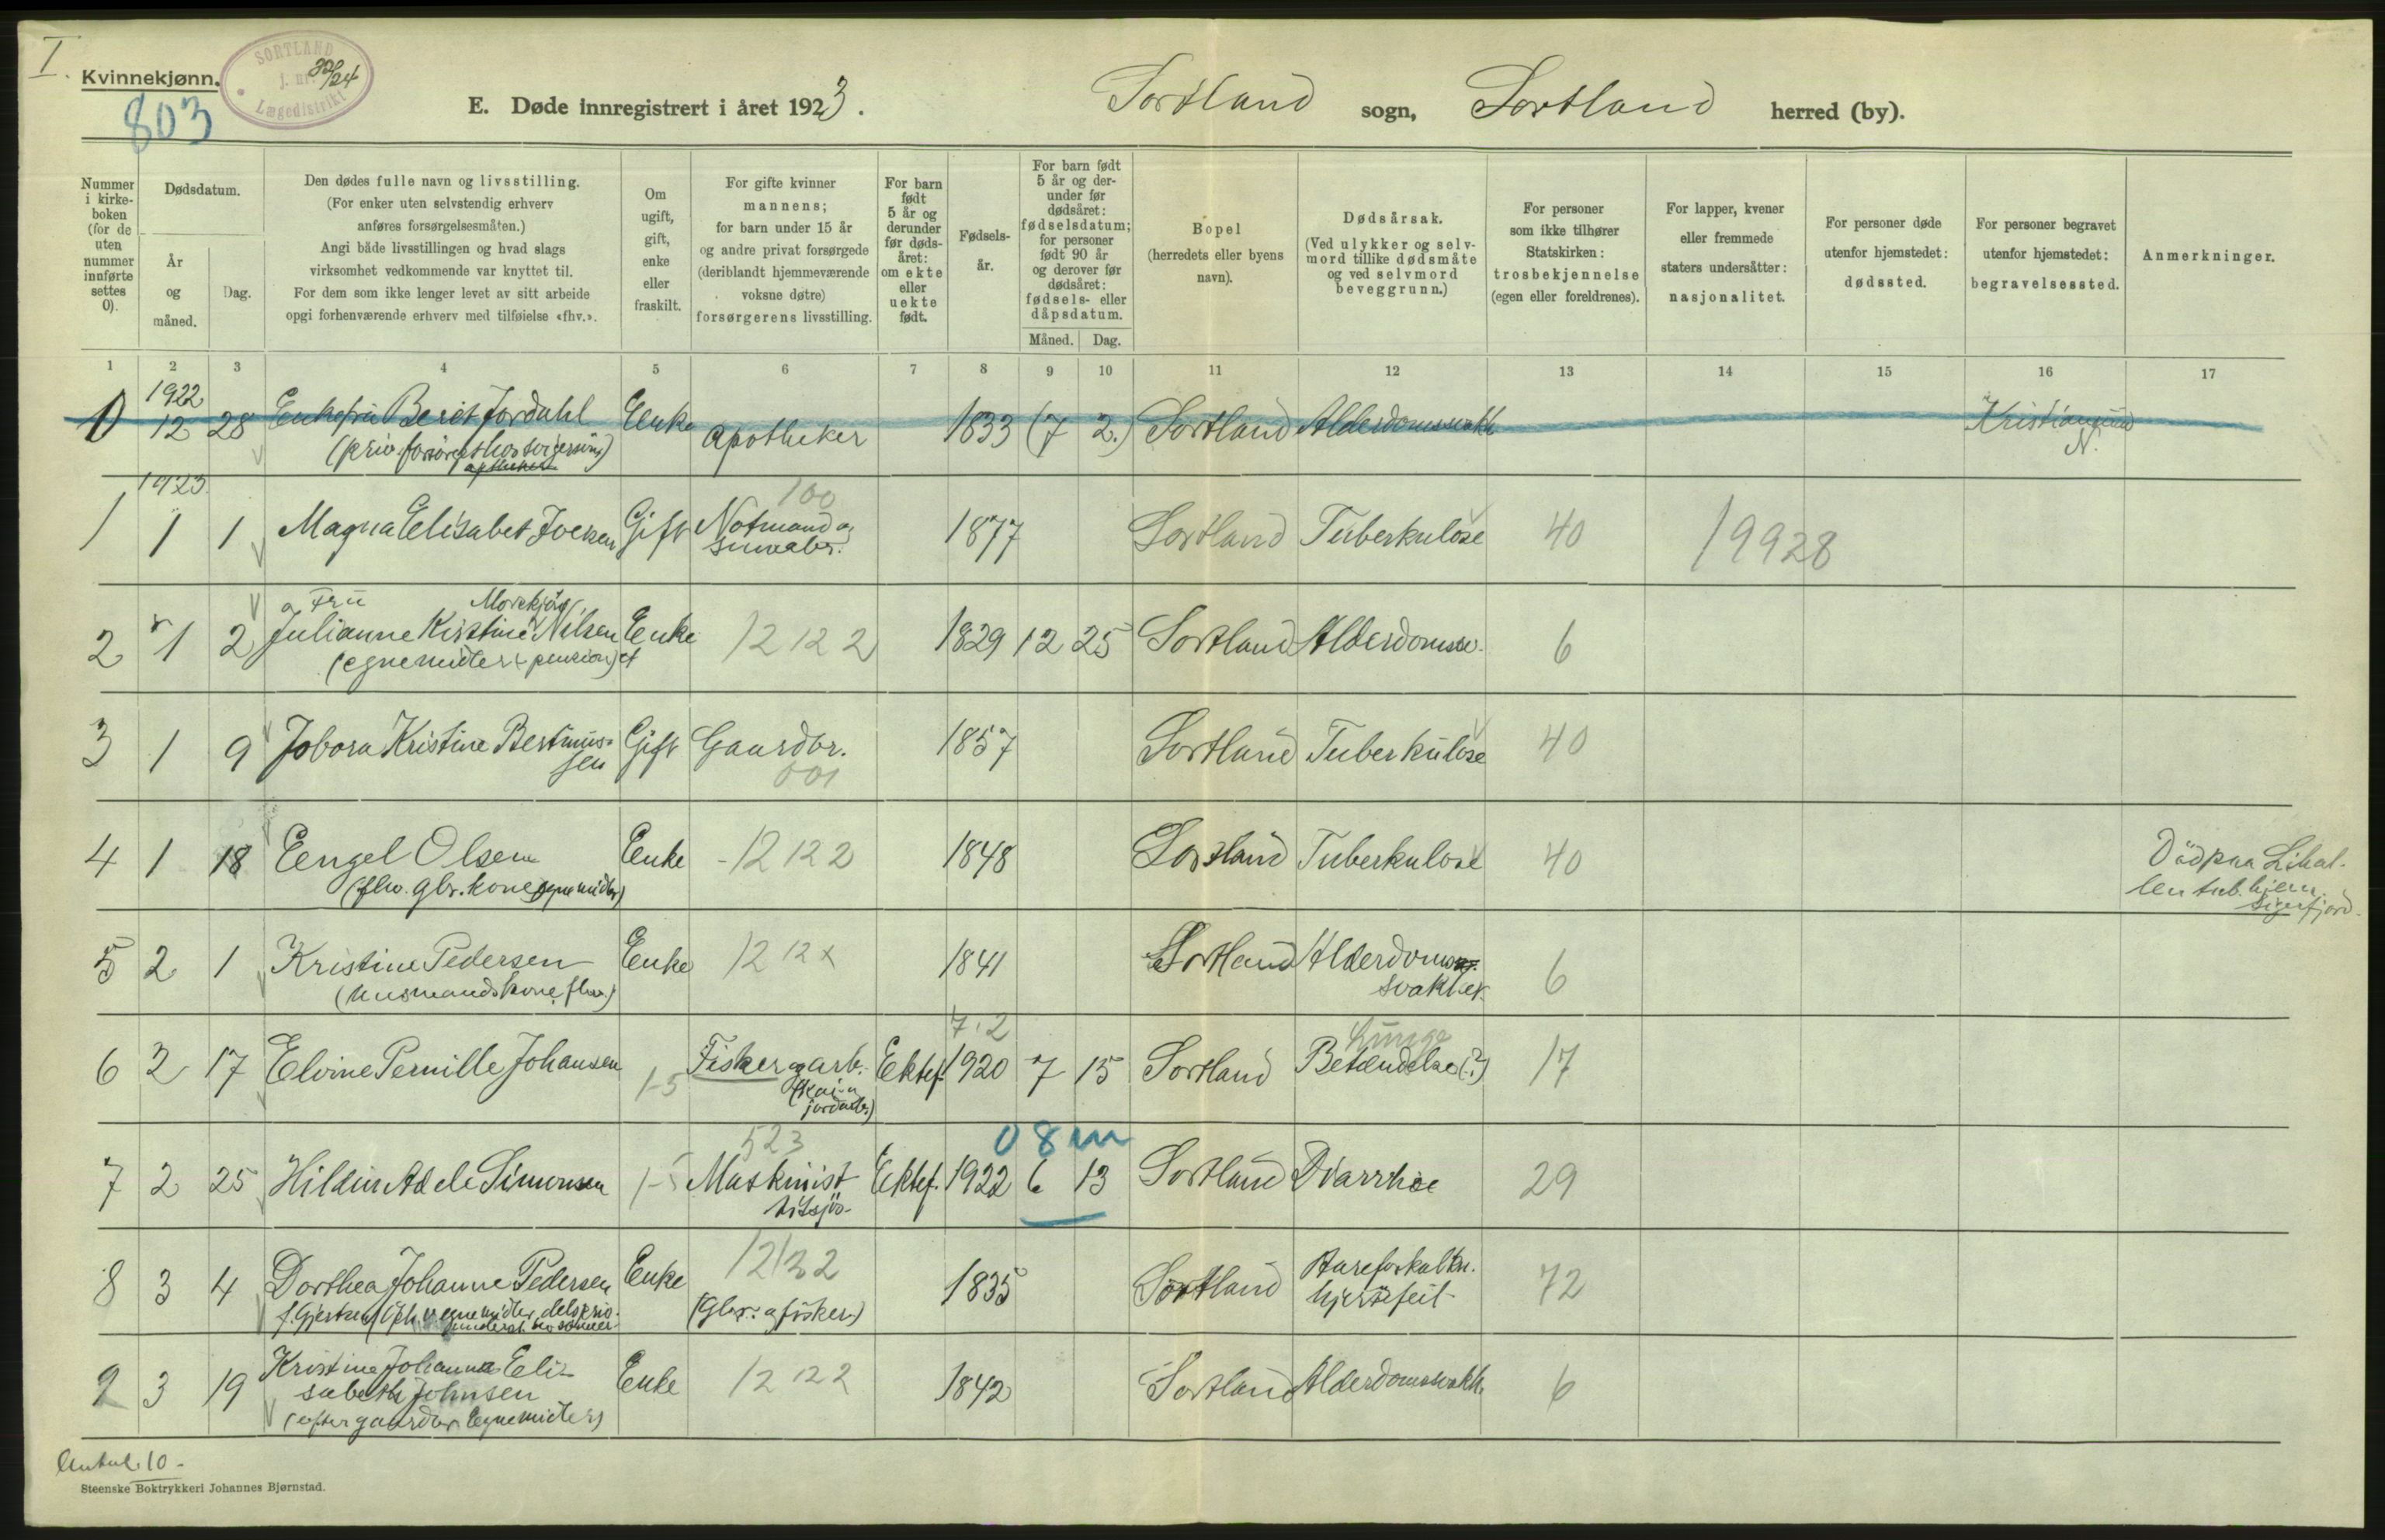 I.
Kvinnekjønn.
SORTLAND
j. nr. 32/24
Lægedistrikt
803
E. Døde innregistrert i året 1923.
Sortland sogn, Sortland herred (by).
Nummer i kirke-boken (for de uten nummer innførte settes 0).
Dødsdatum.
År og måned.
Dag.
Den dødes fulle navn og livsstilling.
(For enker uten selvstendig erhverv
anføres forsørgelsesmåten.)
Angi både livsstillingen og hvad slags
virksomhet vedkommende var knyttet til.
For dem som ikke lenger levet av sitt arbeide
opgi forhenværende erhverv med tilføielse «fhv.».
Om ugift, gift, enke eller fraskilt.
For gifte kvinner
mannens;
for barn under 15 år
og andre privat forsørgede
(deriblandt hjemmeværende
voksne døtre)
forsørgerens livsstilling.
For barn født 5 år og derunder før døds-året: om ekte eller uekte født.
Fødsels-år.
For barn født 5 år og der-under før dødsåret: fødselsdatum; for personer født 90 år og derover før dødsåret: fødsels- eller dåpsdatum.
Måned. Dag.
Bopel
(herredets eller byens
navn).
Dødsårsak.
(Ved ulykker og selv-
mord tillike dødsmåte
og ved selvmord
beveggrunn.)
For personer
som ikke tilhører
Statskirken:
trosbekjennelse
(egen eller foreldrenes).
For lapper, kvener
eller fremmede
staters undersåtter:
nasjonalitet.
For personer døde
utenfor hjemstedet:
dødssted.
For personer begravet
utenfor hjemstedet:
begravelsessted.
Anmerkninger.
1 2 3 4 5 6 7 8 9 10 11 12 13 14 15 16 17
1922
0 12 28 Enkefru Berit Jordahl Enke Apotheker 1833 (7 2.) Sortland Alderdomssvakh. Kristiansund
N.
1923
100
1 1 1 Magna Elisabet Jensen Gift Notmand og 1877 Sortland Tuberkulose 40 19928
Fru
2 1 2 Julianne Kistine Nilsen Enke 12 12 2 1829 12 25 Sortland Alderdomssv. 6
(egne midler + pension)
3 1 9 Jobora Kristine Bertinus- Gift Gaardbr. 1857 Sortland Tuberkulose 40
sen 001
4 1 18 Eengel Olsen Enke - 12 12 2 1848 Sortland Tuberkulose 40 Död paa Lihal-
(fhv. gbr. kone egne midler) len tub. hjem.
Sigerfjord.
5 2 1 Kristine Pedersen Enke 12 12 x 1841 Sortland Alderdoms
(husmandskone fhv.) svakhet. 6
7.2
Lunge
6 2 17 Elvine Pernille Johansen 1-5 Fisker og arb. Ektef. 1920 7 15 Sortland Betændelse (?) 17
(kai- og
jordarb.)
523 0 8 m
7 2 25 Hildur Adele Simonsen 1-5 Maskinist Ektef. 1922 6 13 Sortland Diarrhoe 29
tilsjös-
8 3 4 Dorthea Johanne Pedersen Enke 12 12 2 1835 Sortland Aareforkalkn. 72
(Gbr. og fisker) hjertefeil
9 3 19 Kristine Johanna Eli- Enke 12 12 2 1842 Sortland Alderdomssvakh. 6
sabeth Johnsen
(efter gaardbr. Egne midler)
Antal 10 -
Steenske Boktrykkeri Johannes Bjørnstad.